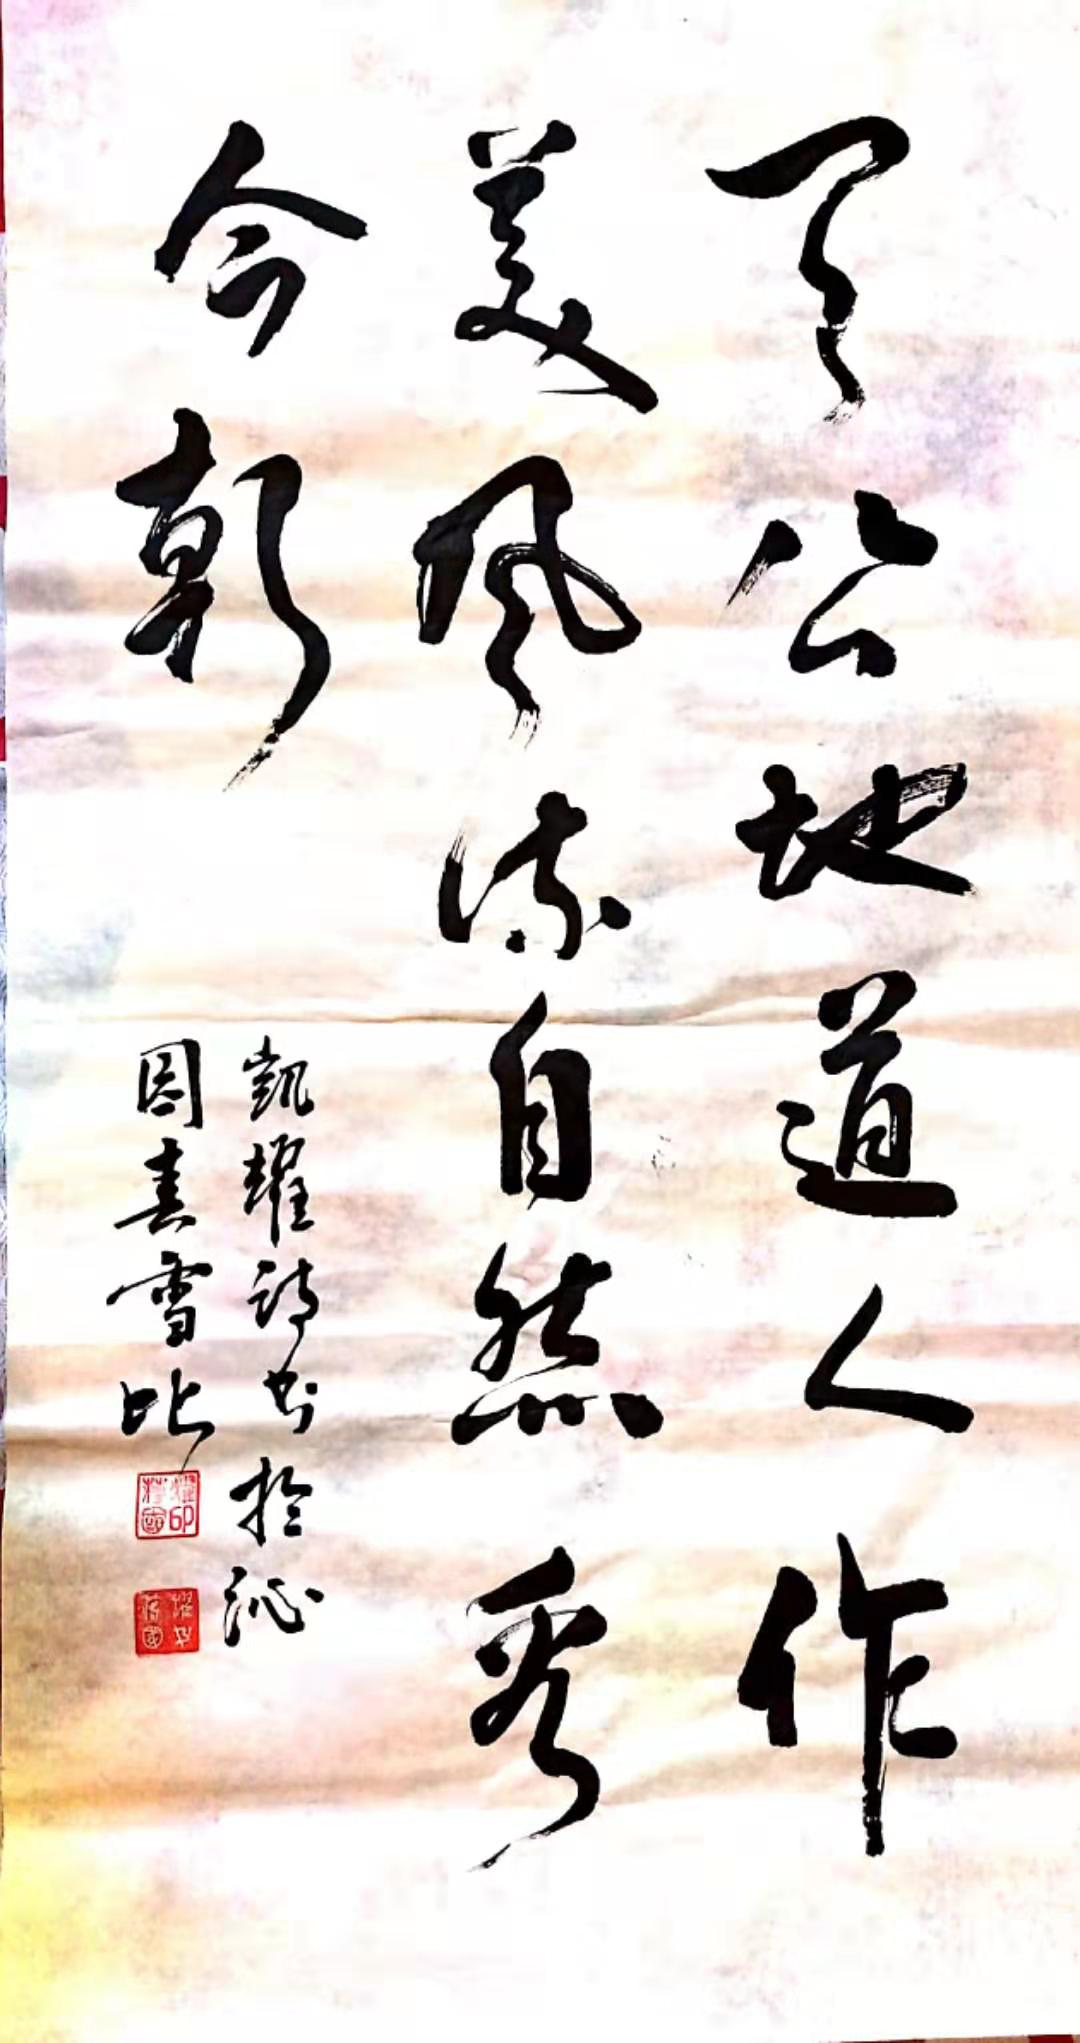 天公地道人作
美风流自然秀
今朝
凯耀诗书于沁
园春雪